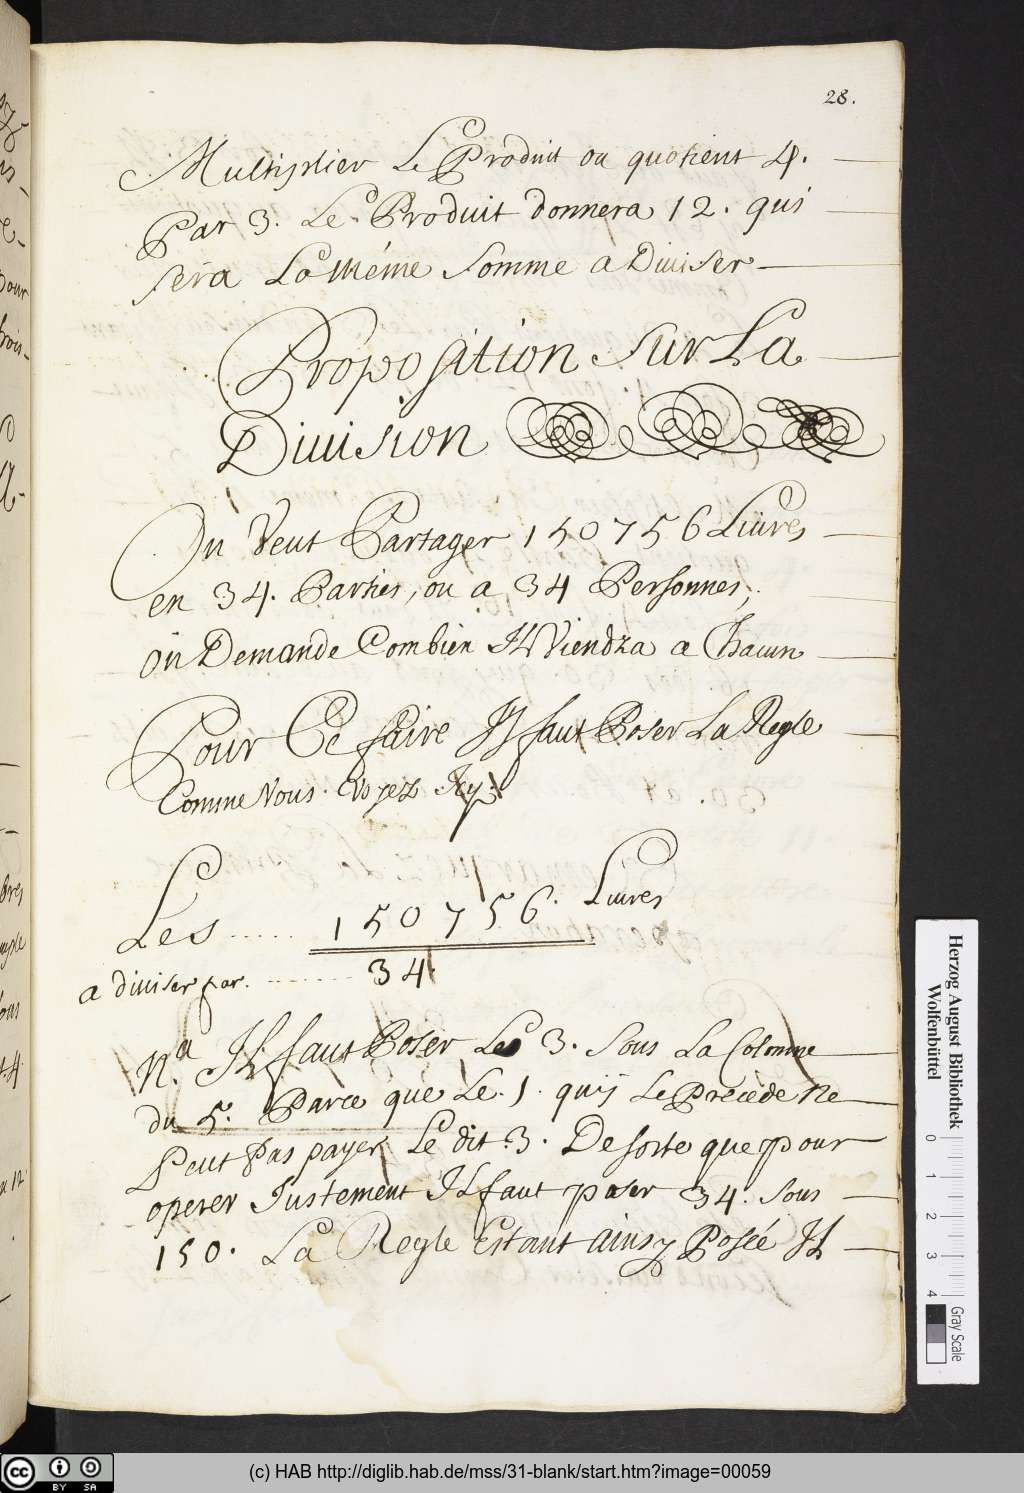 28.
Multiplier Le Produit ou quotient 4.
Par 3. Le Produit donnera 12. qui
sera La méme Somme a Diuiser
Proposition Sur La
Diuision
On Veut Partager 150756 Liures
en 34. Parties, ou a 34 Personnes,
on Demande Combien Il Viendra a Chacun
Pour Ce faire Il faut Poser La Regle
Comme Vous Voyez Icy:
Les ..... 150756. Liures
a diuiser par. ........ 34.
Na. Il faut Poser Le 3. Sous La Colomne
du 5. Parce que Le. 1. quij Le Précéde Ne
Peut Pas payer Le dit 3. De sorte que pour
operer Justement Il faut poser 34. Sous
150. La Regle Estant ainsy Posée Il
Herzog August Bibliothek
Wolfenbüttel
0 1 2 3 4
Gray Scale
cc BY SA
(c) HAB http://diglib.hab.de/mss/31-blank/start.htm?image=00059